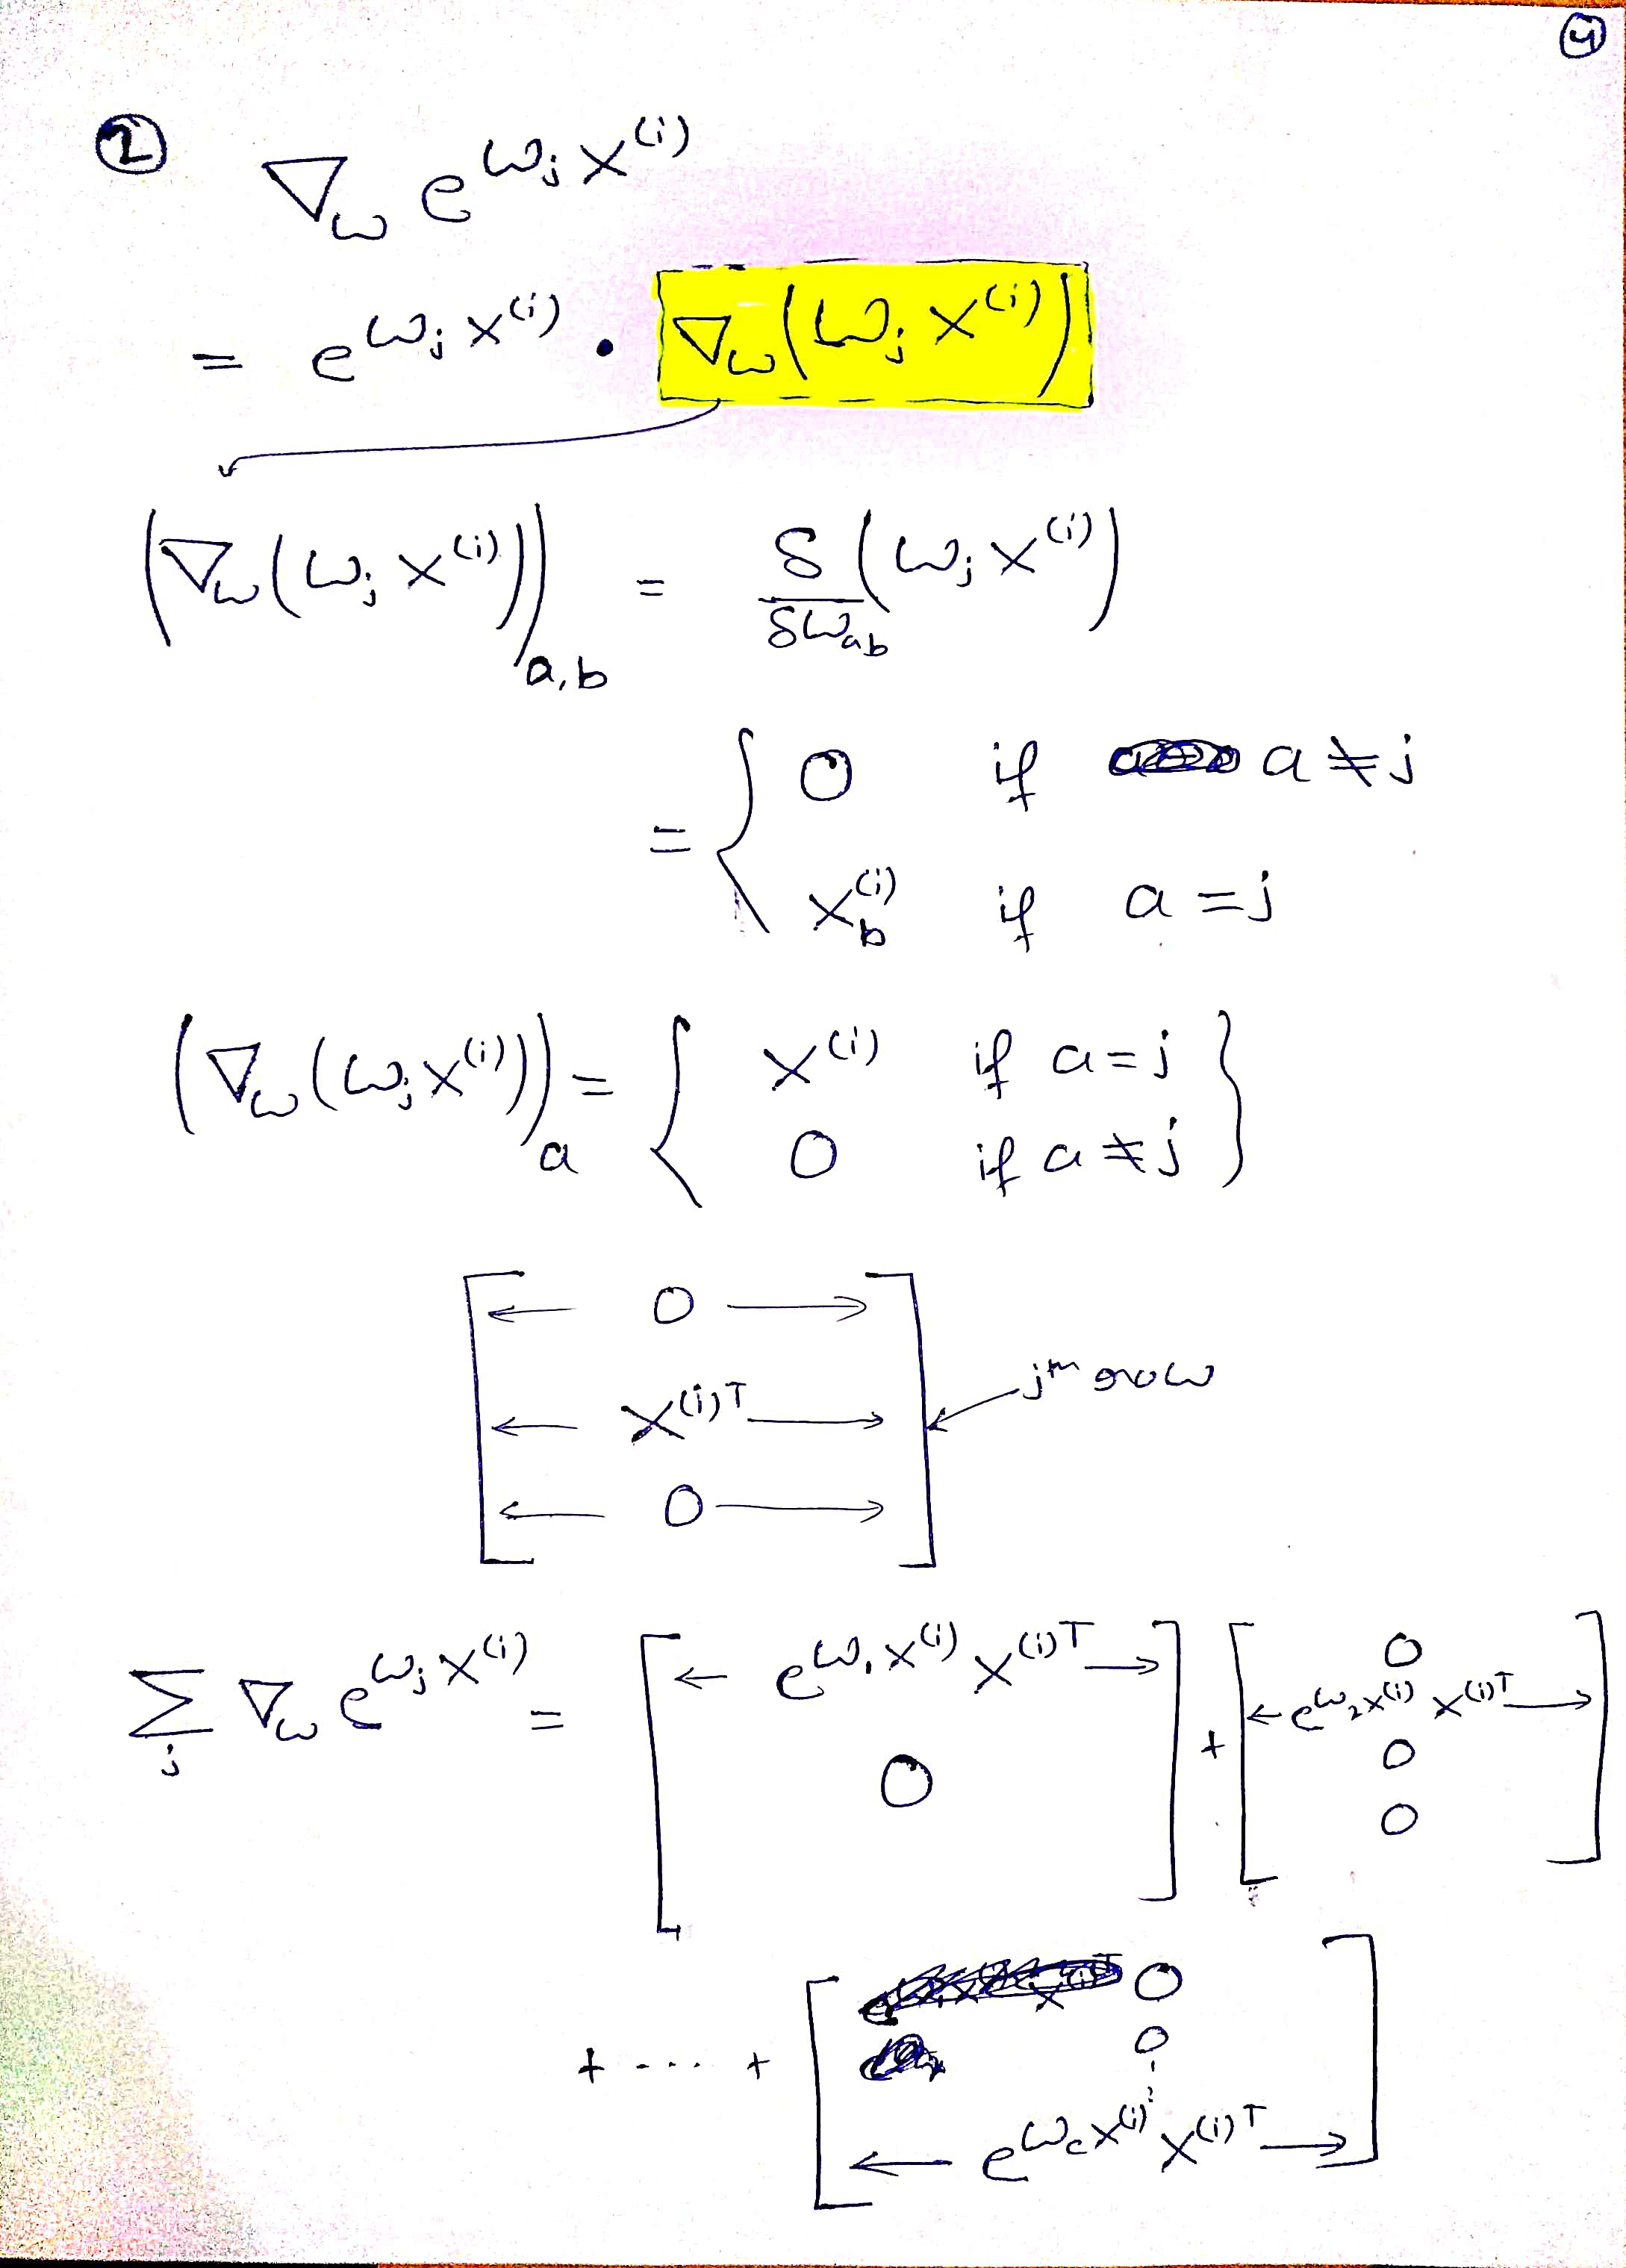 ④
② ∇_ω e^{ω_j x^{(i)}}
= e^{ω_j x^{(i)}} · ∇_ω(ω_j x^{(i)})
(∇_ω(ω_j x^{(i)}))_{a,b} = δ/δω_{ab} (ω_j x^{(i)})
= { 0 if a ≠ j
x_b^{(i)} if a = j
(∇_ω(ω_j x^{(i)}))_a = { x^{(i)} if a = j
0 if a ≠ j }
[ ← 0 →
← x^{(i)T} → ] ← jth row
← 0 →
Σ_j ∇_ω e^{ω_j x^{(i)}} = [ ← e^{ω_1 x^{(i)}} x^{(i)T} → 0 ] + [ 0 ← e^{ω_2 x^{(i)}} x^{(i)T} → 0 0 ]
+ .... + [ 0 0 ⋮ ← e^{ω_c x^{(i)}} x^{(i)T} → ]